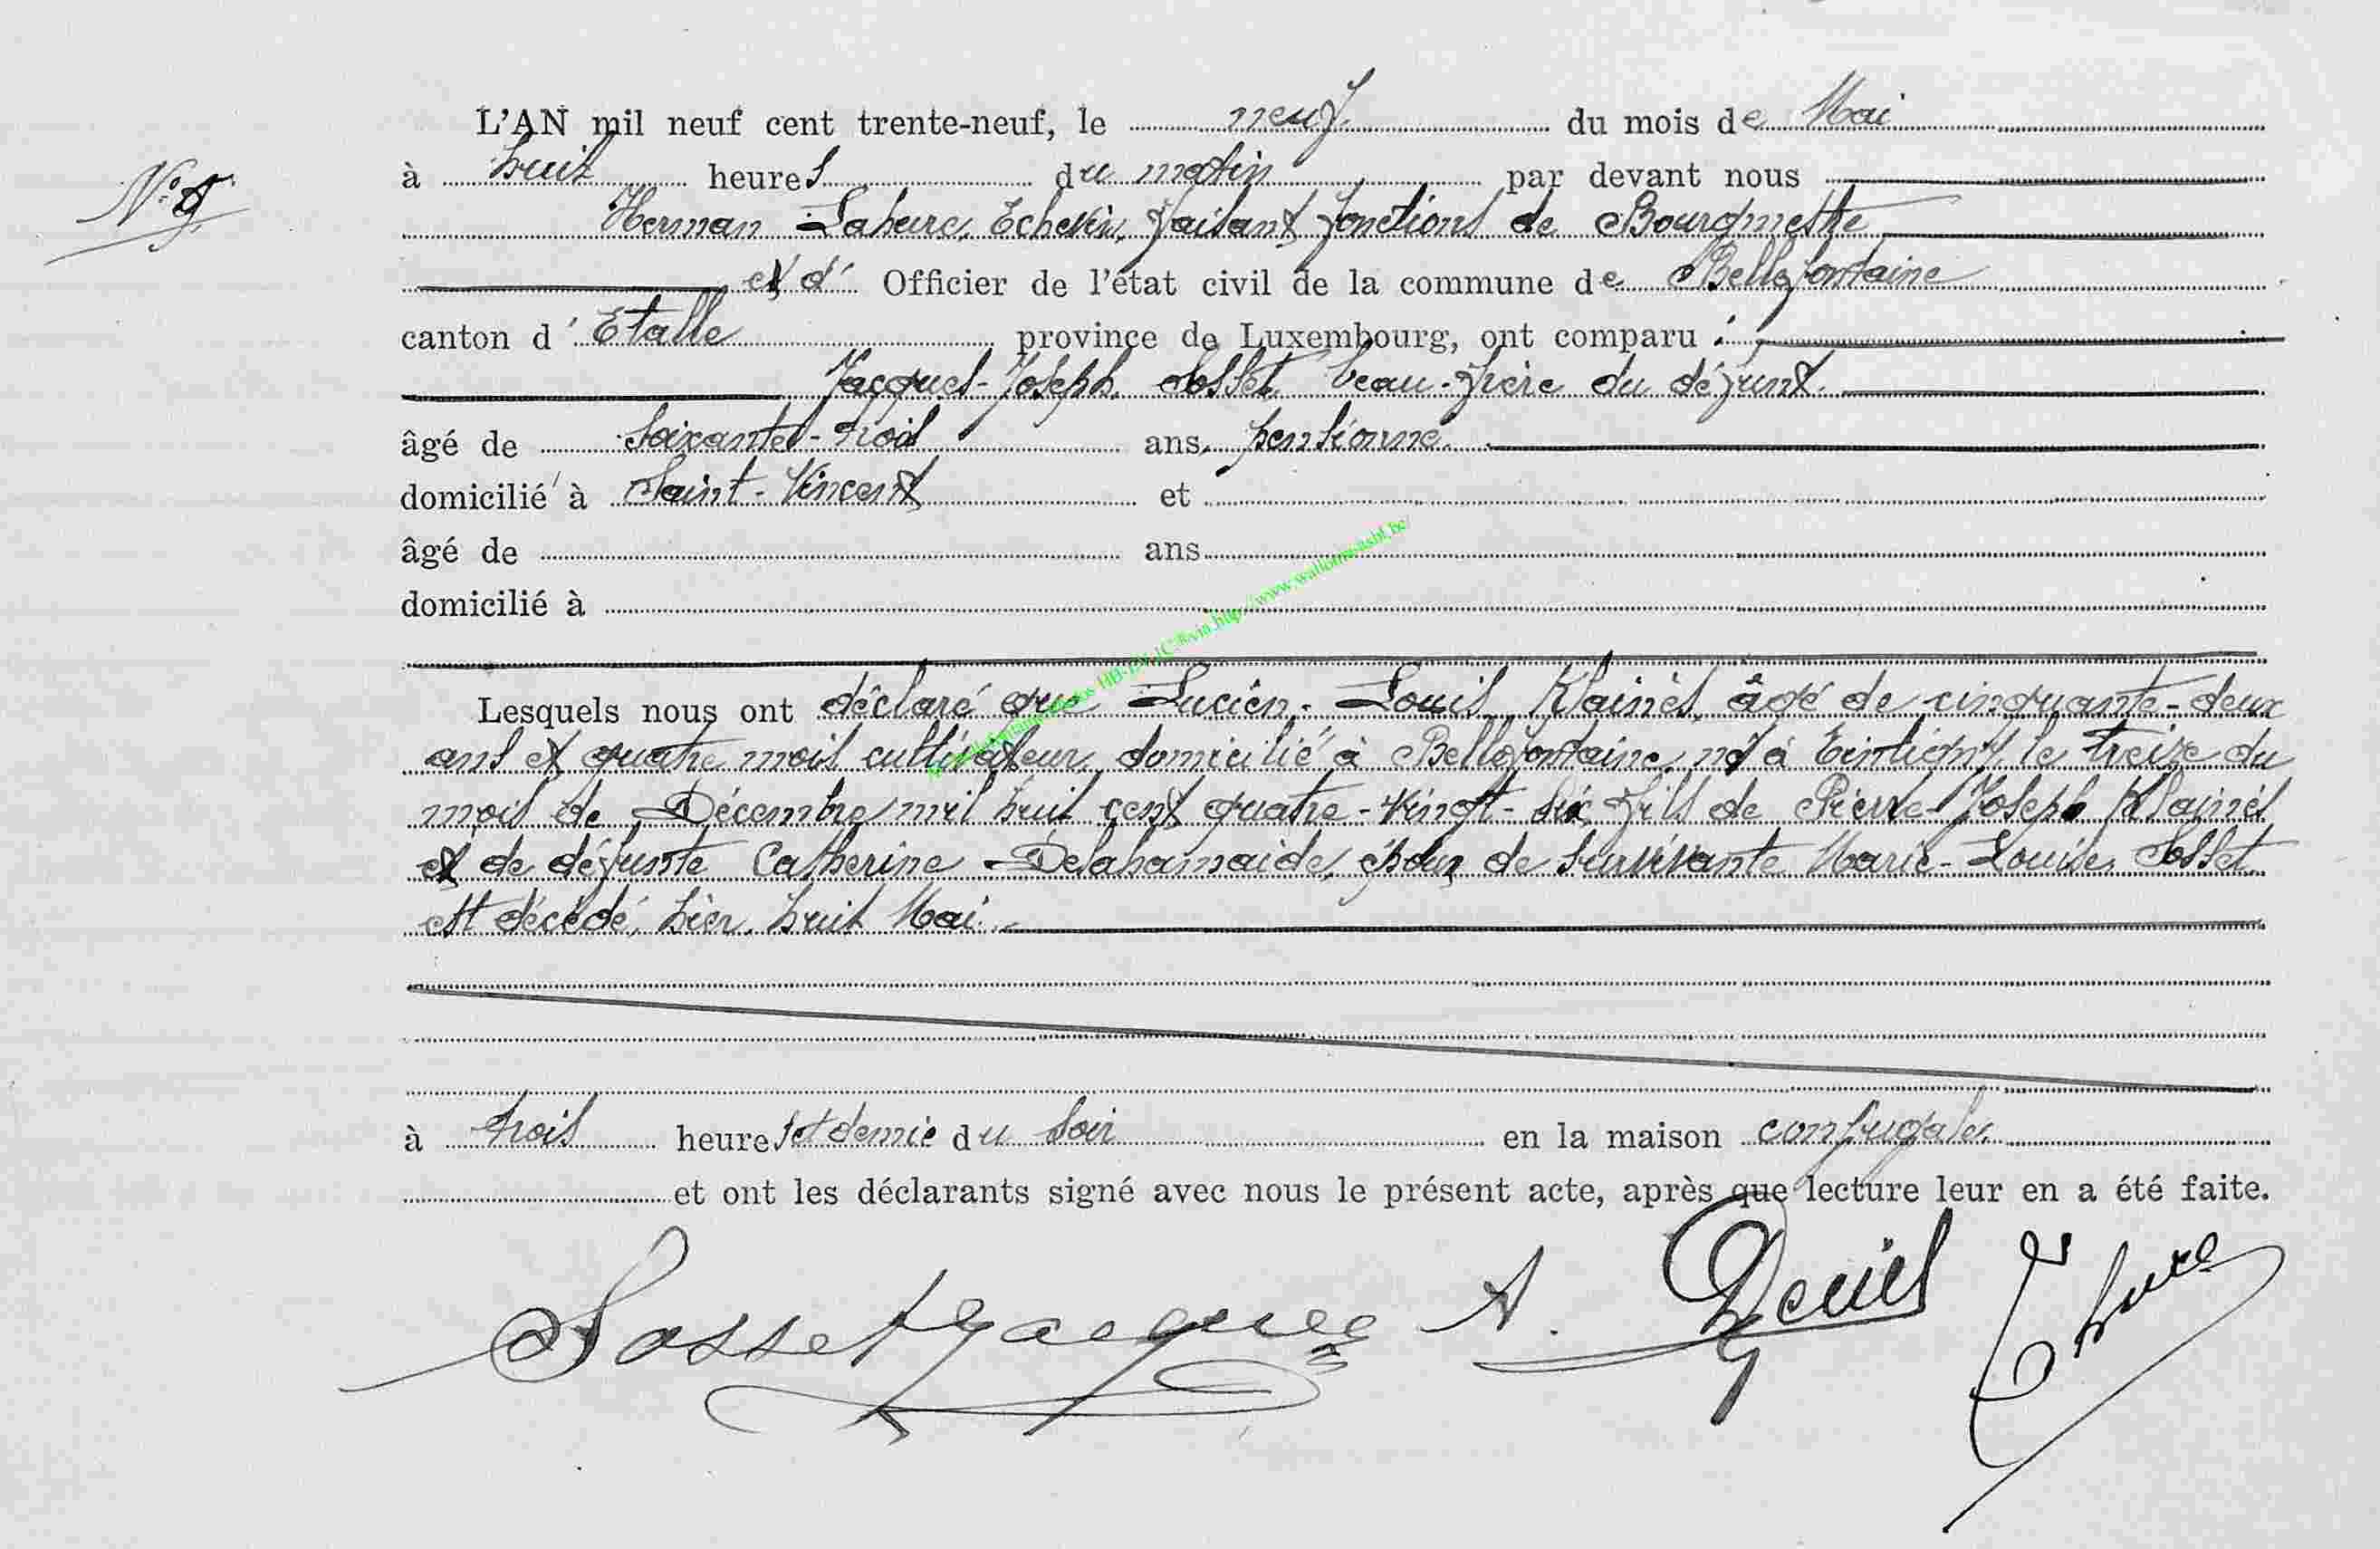 L'AN mil neuf cent trente-neuf, le neuf. du mois de Mai
N°
à huit heures du matin par devant nous
Herman Lahure, Echevin, faisant fonctions de Bourgmestre
et d' Officier de l'état civil de la commune de Bellefontaine
canton d' Etalle province de Luxembourg, ont comparu :
Jacques-Joseph Sosset, beau-frère du défunt.
âgé de soixante-trois ans, pensionné.
domicilié à Saint-Vincent et
âgé de ans
domicilié à
Lesquels nous ont déclaré que Lucien-Louis Klainès, âgé de cinquante-deux
ans et quatre mois cultivateur, domicilié à Bellefontaine, né à Tintigny, le treize du
mois de Décembre mil huit cent quatre-vingt-six, fils de Pierre-Joseph Klainès
et de défunte Catherine Delahamaide, époux de survivante Marie-Louise Sosset
est décédé, hier, huit Mai.
à trois heures et demie du soir en la maison conjugale.
et ont les déclarants signé avec nous le présent acte, après que lecture leur en a été faite.
Sosset Jacques A. Lahure
via http://www.wallonia-asbl.be/